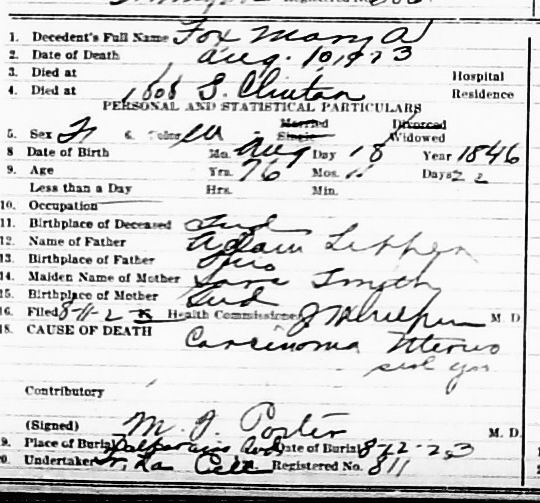 1. Decedent's Full Name Fox Mary A
2. Date of Death Aug. 10, 1923
3. Died at Hospital
4. Died at 1808 S. Clinton Residence
PERSONAL AND STATISTICAL PARTICULARS
5. Sex F 6. Color W Married Single Divorced Widowed
8 Date of Birth Mo. Aug Day 18 Year 1846
9. Age Yrs. 76 Mos. 11 Days 22
Less than a Day Hrs. Min.
10. Occupation
11. Birthplace of Deceased Ind
12. Name of Father Adam
13. Birthplace of Father Ohio
14. Maiden Name of Mother Smyth
15. Birthplace of Mother Ind
16. Filed 8-11-2 Health Commissioner M. D.
18. CAUSE OF DEATH Carcinoma Uterus
Contributory
(Signed) M. J. Porter M. D.
19. Place of Burial Valparaiso Ind Date of Burial 8-12-23
20. Undertaker Registered No. 811